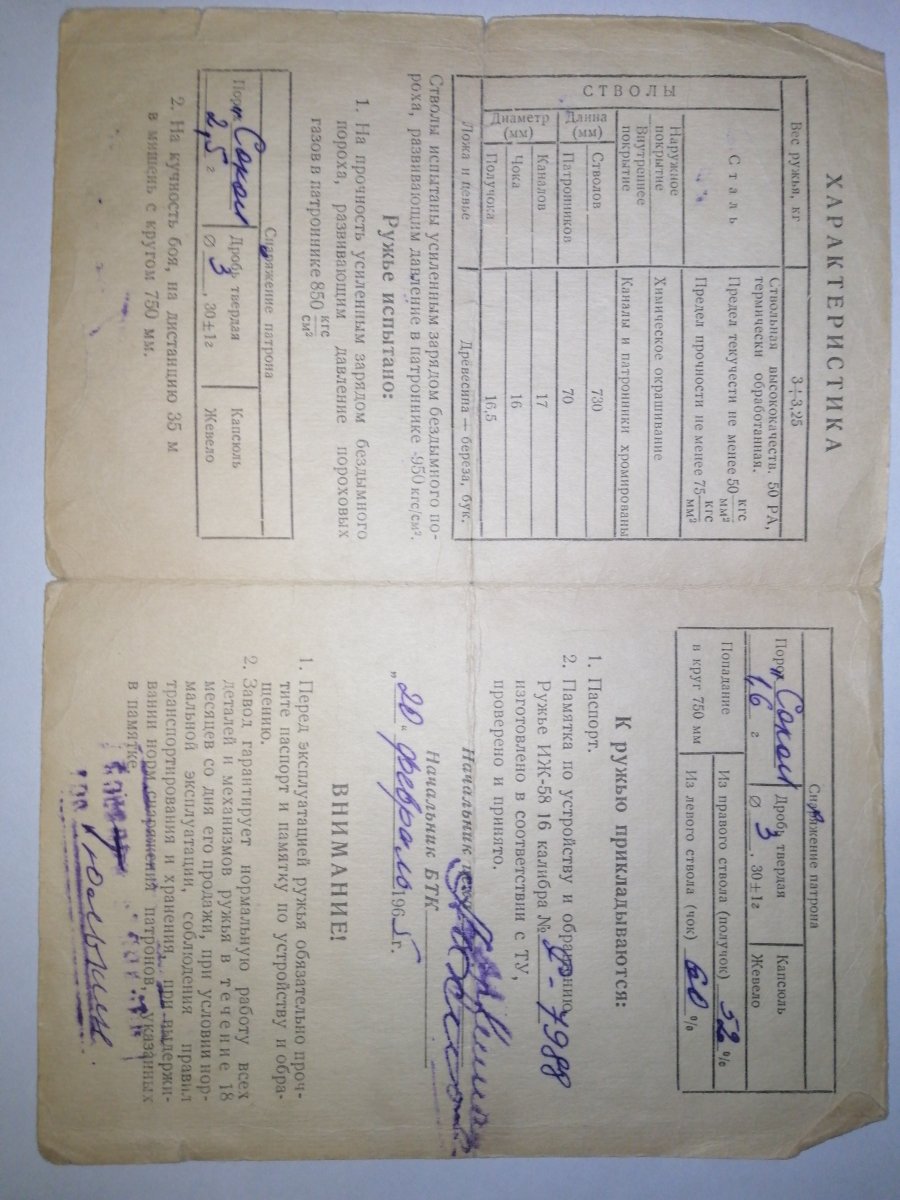 ХАРАКТЕРИСТИКА
Вес ружья, кг 3÷3,25
СТВОЛЫ
Сталь
Ствольная высококачеств. 50 РА,
термически обработанная.
Предел текучести не менее 50 кгс/мм²
Предел прочности не менее 75 кгс/мм²
Наружное покрытие Химическое окрашивание
Внутреннее покрытие Каналы и патронники хромированы
Длина (мм) Стволов 730
Патронников 70
Диаметр (мм) Каналов 17
Чока 16
Получока 16,5
Ложа и цевье Древесина — береза, бук.
Стволы испытаны усиленным зарядом бездымного по-
роха, развивающим давление в патроннике -950 кгс/см².
Ружье испытано:
1. На прочность усиленным зарядом бездымного
пороха, развивающим давление пороховых
газов в патроннике 850 кгс/см²
Снаряжение патрона
Порох Сокол Дробь твердая Капсюль
2,5 г ∅ 3, 30±1г Жевело
2. На кучность боя, на дистанцию 35 м
в мишень с кругом 750 мм.
Снаряжение патрона
Порох Сокол Дробь твердая Капсюль
1,6 г ∅ 3, 30±1г Жевело
Попадание Из правого ствола (получок) 52 %
в круг 750 мм Из левого ствола (чок) 60 %
К ружью прикладываются:
1. Паспорт.
2. Памятка по устройству и обращению
Ружье ИЖ-58 16 калибра №
изготовлено в соответствии с ТУ,
проверено и принято.
Начальник цеха
Начальник БТК
„20" февраля 1965 г.
ВНИМАНИЕ!
1. Перед эксплуатацией ружья обязательно проч-
тите паспорт и памятку по устройству и обра-
щению.
2. Завод гарантирует нормальную работу всех
деталей и механизмов ружья в течение 18
месяцев со дня его продажи, при условии нор-
мальной эксплуатации, соблюдения правил
транспортирования и хранения, при выдержи-
вании норм снаряжения патронов, указанных
в памятке.